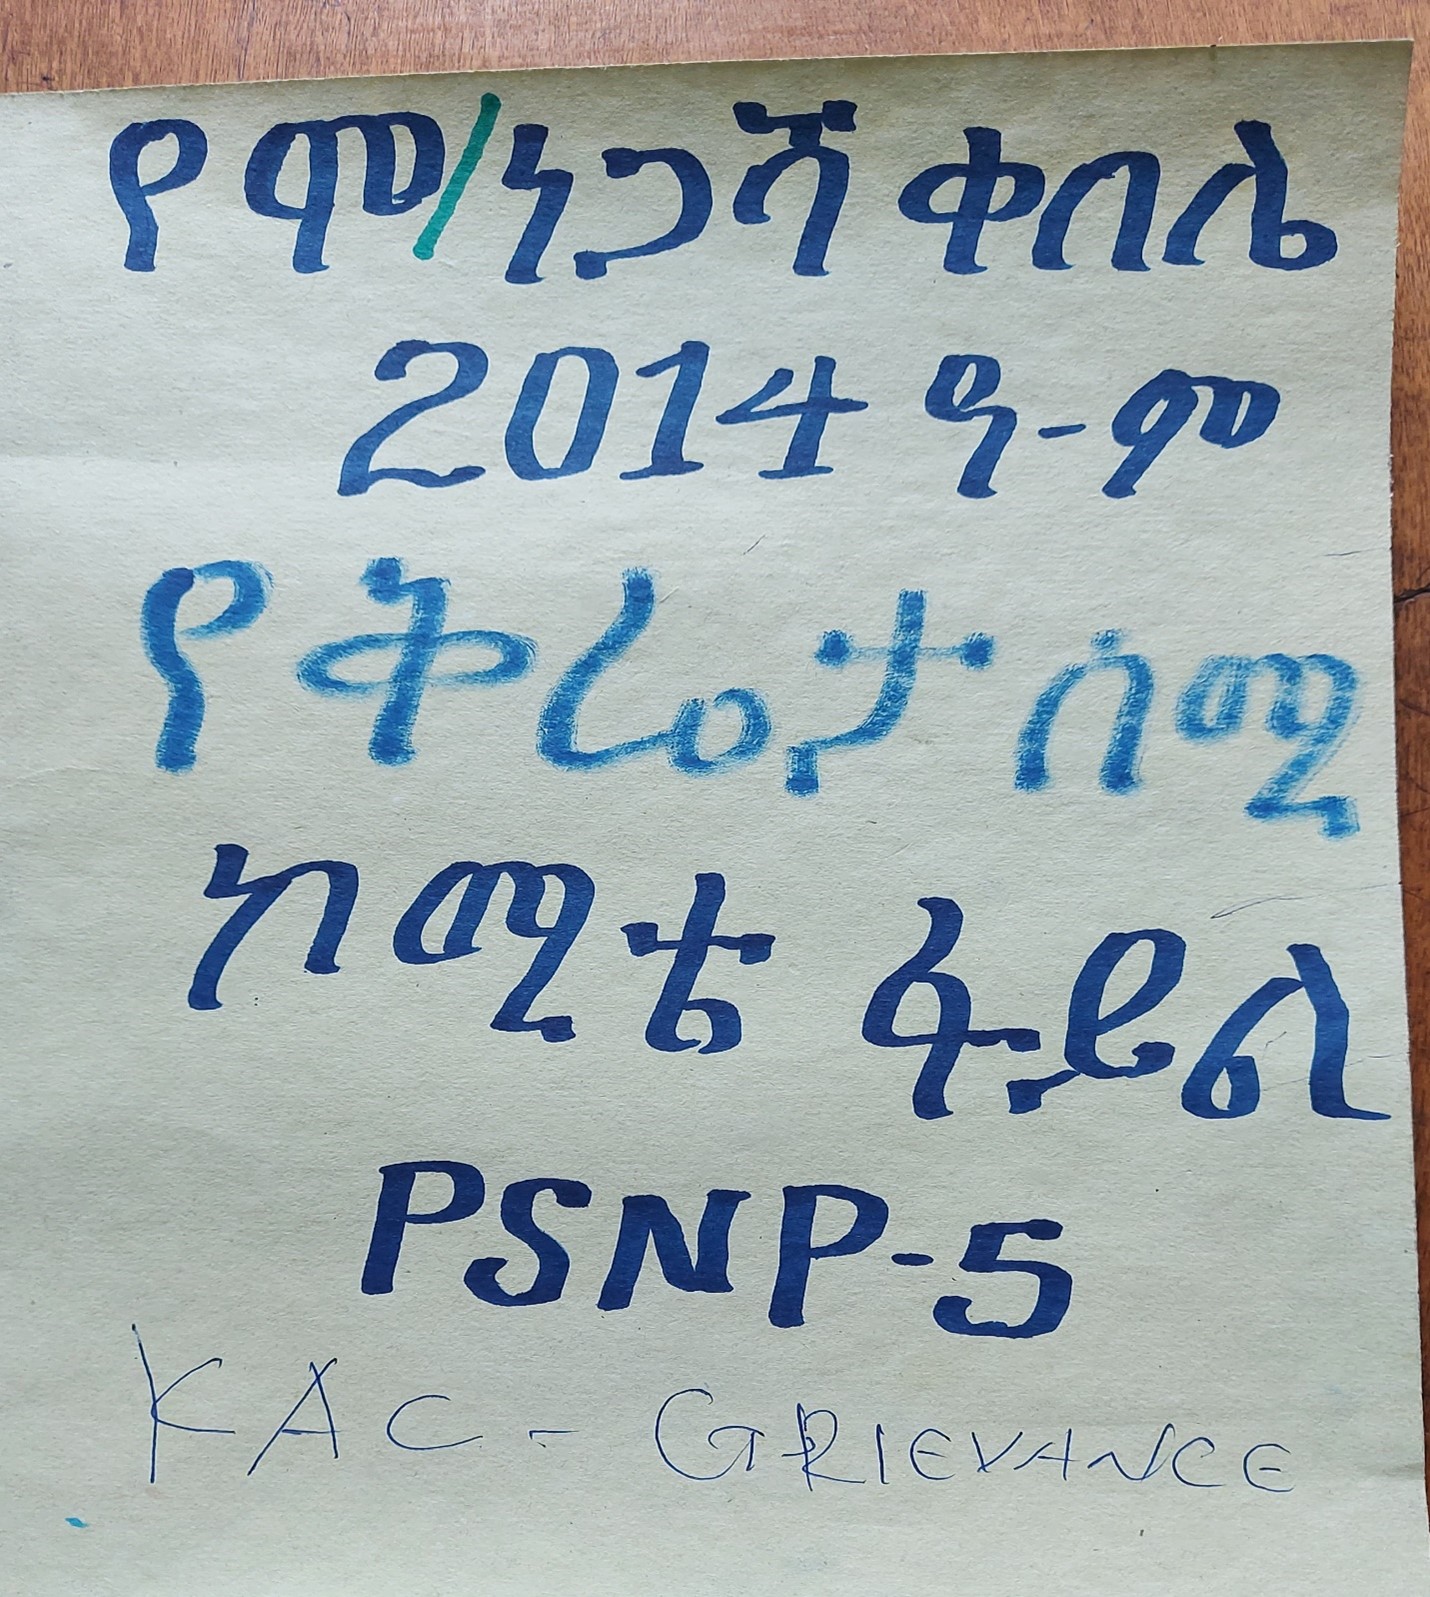 የም/ነጋሻ ቀበሌ
2014 ዓ-ም
የቅሬታ ሰሚ
ኮሚቴ ፋይል
PSNP-5
KAC - GRIEVANCE